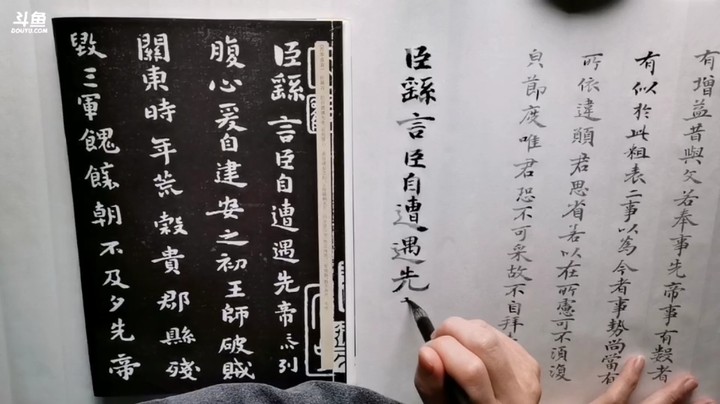 斗鱼
DOUYU.COM
有增益昔與文若奉事先帝事有數者
有似於此粗表二事以為今者事勢尚當有
所依違願君思省若以在所慮可不須復
節度唯君恐不可采故不自拜
臣繇言臣自遭遇先
臣繇言臣自遭遇先帝忝列
腹心爰自建安之初王師破賊
關東時年荒穀貴郡縣殘
毀三軍餽饟朝不及夕先帝